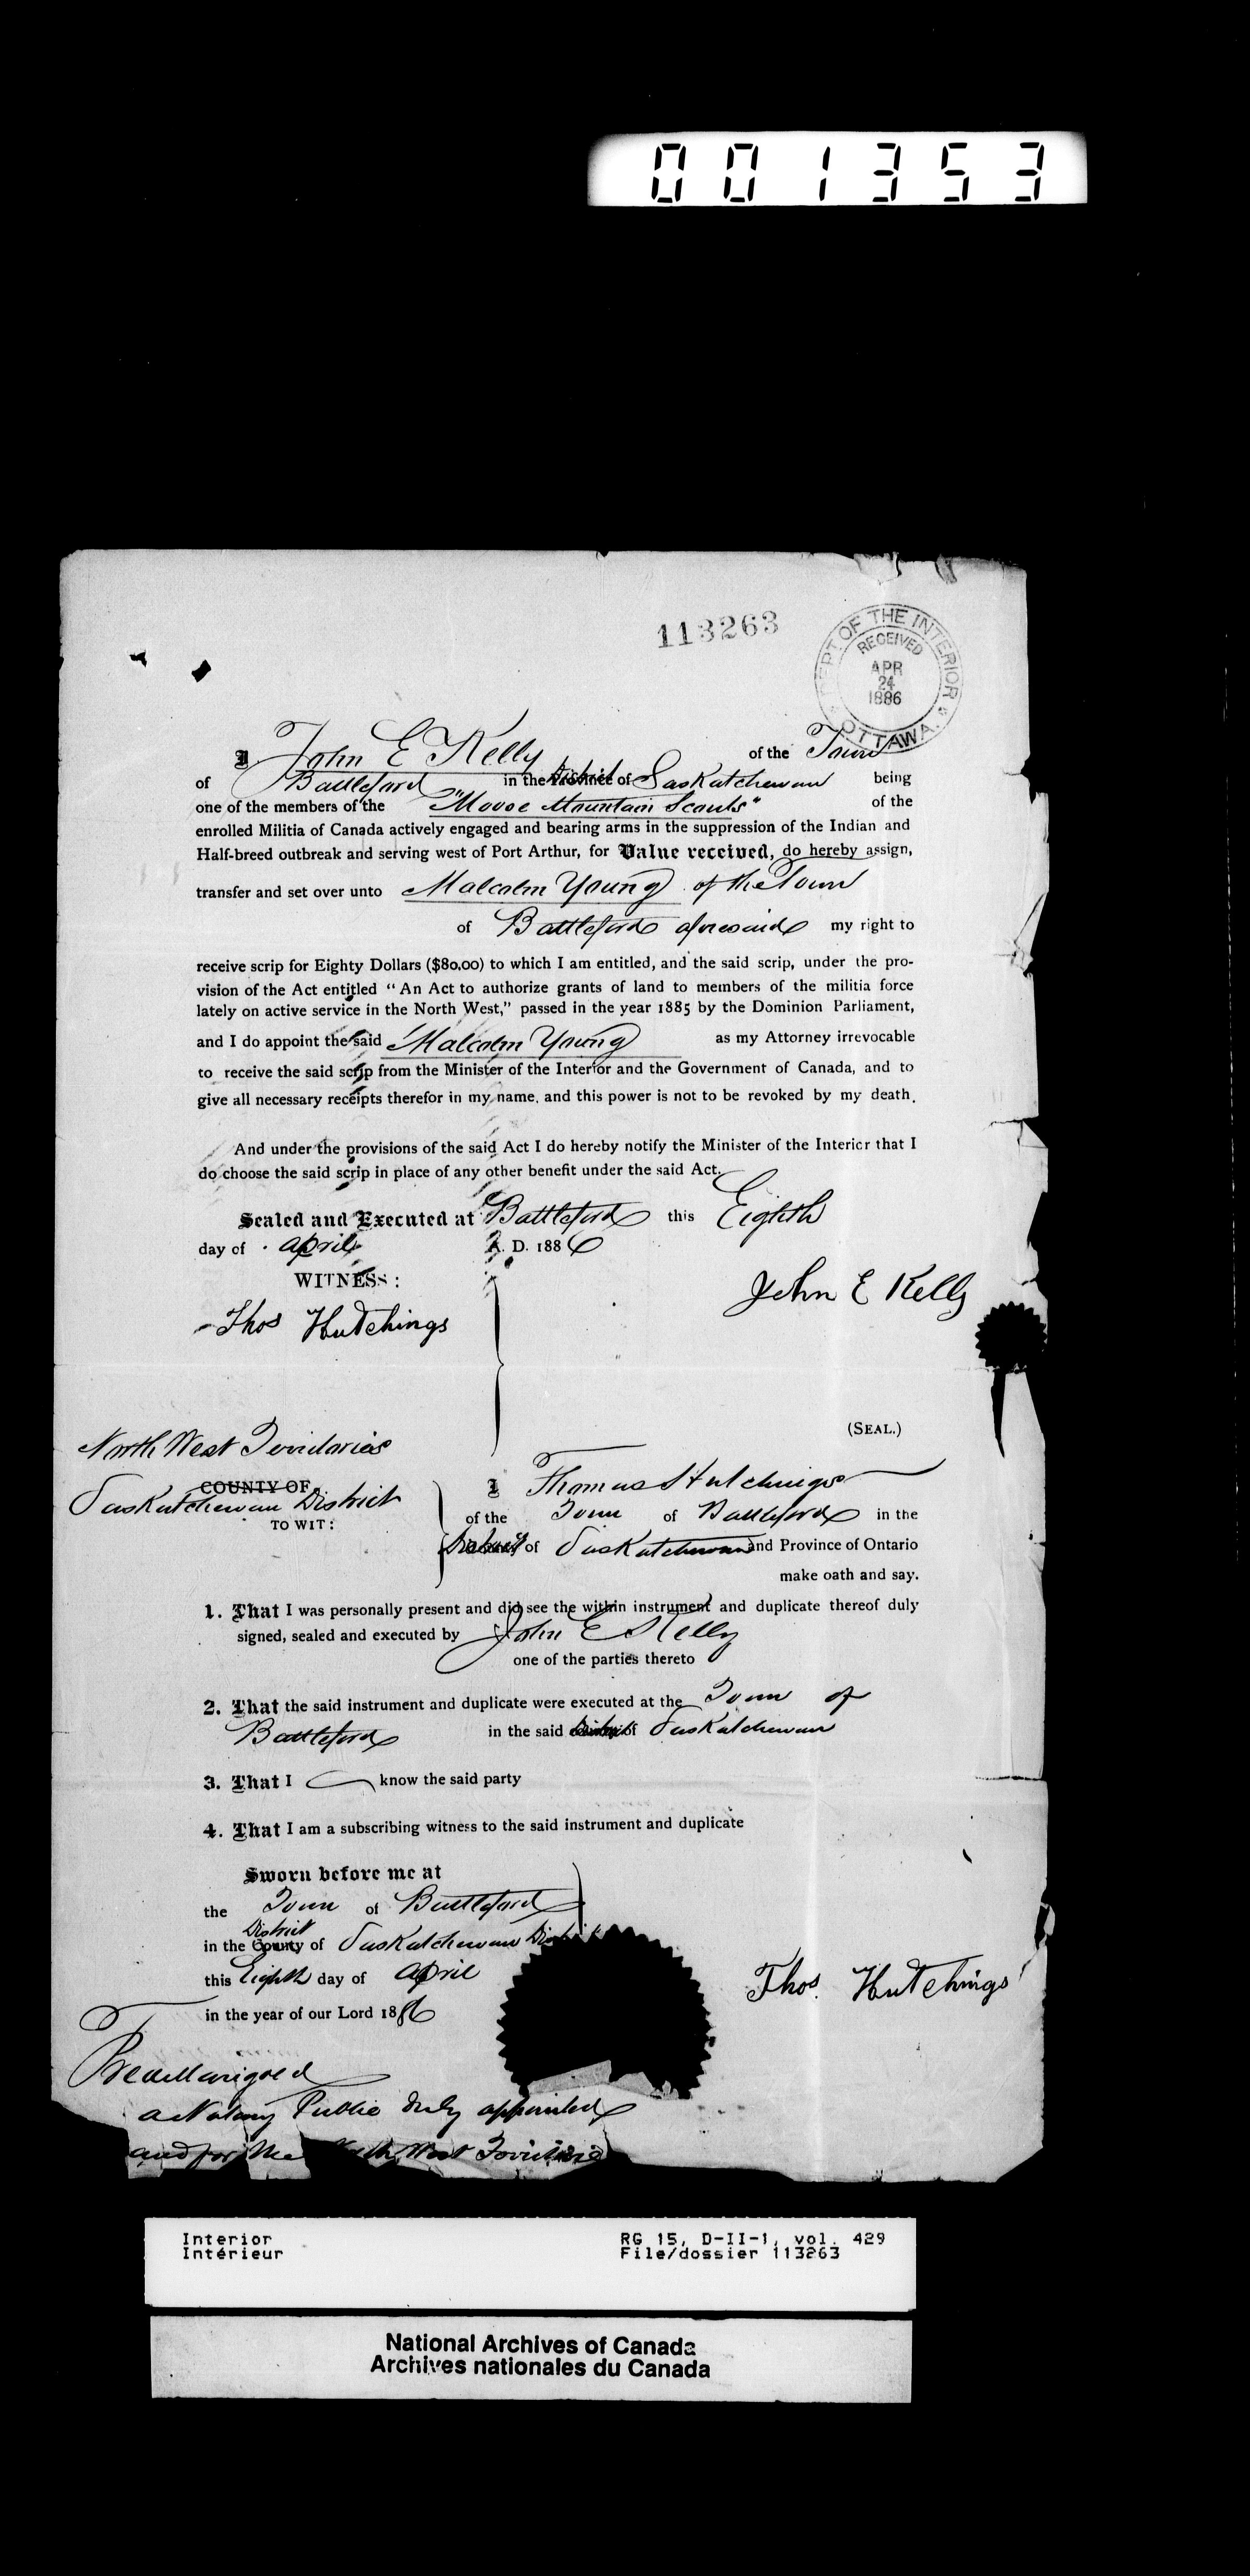 001353
113263
DEPT OF THE INTERIOR
RECEIVED
APR
24
1886
OTTAWA.
I John E Kelly of the Town
of Battleford in the District of Saskatchewan being
one of the members of the "Moose Mountain Scouts" of the
enrolled Militia of Canada actively engaged and bearing arms in the suppression of the Indian and
Half-breed outbreak and serving west of Port Arthur, for Value received, do hereby assign,
transfer and set over unto Malcolm Young of the Town
of Battleford aforesaid my right to
receive scrip for Eighty Dollars ($80.00) to which I am entitled, and the said scrip, under the pro-
vision of the Act entitled "An Act to authorize grants of land to members of the militia force
lately on active service in the North West," passed in the year 1885 by the Dominion Parliament,
and I do appoint the said Malcolm Young as my Attorney irrevocable
to receive the said scrip from the Minister of the Interior and the Government of Canada, and to
give all necessary receipts therefor in my name, and this power is not to be revoked by my death.
And under the provisions of the said Act I do hereby notify the Minister of the Interior that I
do choose the said scrip in place of any other benefit under the said Act.
Sealed and Executed at Battleford this Eighth
day of April A. D. 1886
WITNESS:
John E Kelly
Thos Hutchings
(SEAL.)
North West Territories
COUNTY OF
Saskatchewan District
TO WIT:
I Thomas Hutchings
of the Town of Battleford in the
District of Saskatchewan and Province of Ontario
make oath and say.
1. That I was personally present and did see the within instrument and duplicate thereof duly
signed, sealed and executed by John E Kelly
one of the parties thereto
2. That the said instrument and duplicate were executed at the Town of
Battleford in the said District of Saskatchewan
3. That I know the said party
4. That I am a subscribing witness to the said instrument and duplicate
Sworn before me at
the Town of Battleford
District
in the County of Saskatchewan District
this Eighth day of April
in the year of our Lord 1886
Thos. Hutchings
a Notary Public duly appointed
and for the North West Territories
Interior
Intérieur
RG 15, D-II-1, vol. 429
File/dossier 113263
National Archives of Canada
Archives nationales du Canada